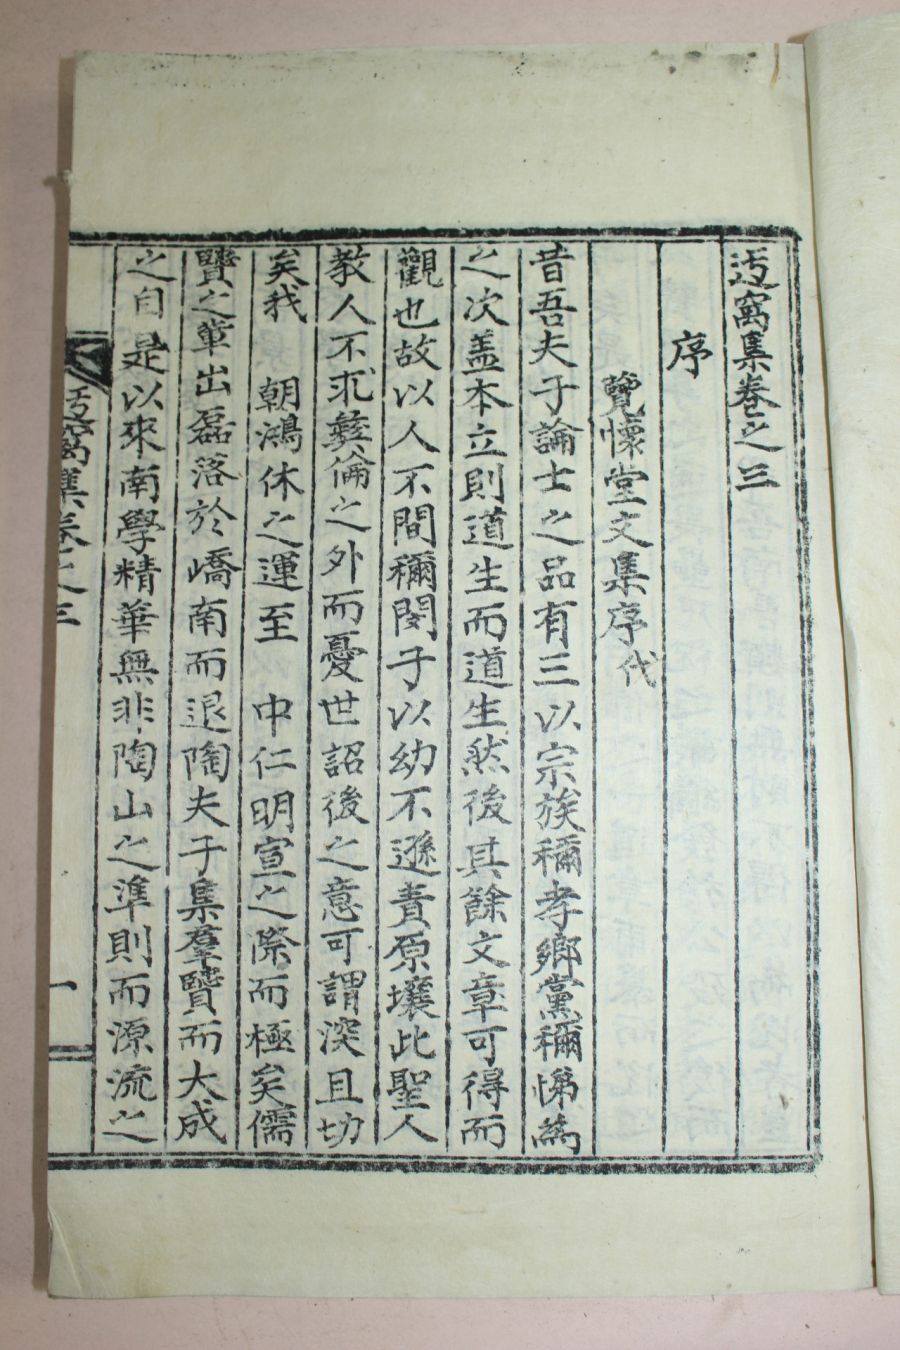 迃窩集卷之三
序
覽懷堂文集序代
昔吾夫子論士之品有三以宗族穪孝鄕黨穪悌為
之次盖本立則道生而道生然後其餘文章可得而
觀也故以人不間穪閔子以幼不遜責原壤此聖人
教人不求彛倫之外而憂世詔後之意可謂深且切
矣我　朝鴻休之運至　中仁明宣之際而極矣儒
贒之軰出磊落於嶠南而退陶夫子集羣贒而大成
之自是以來南學精華無非陶山之準則而源流之
迃窩集卷之三　一